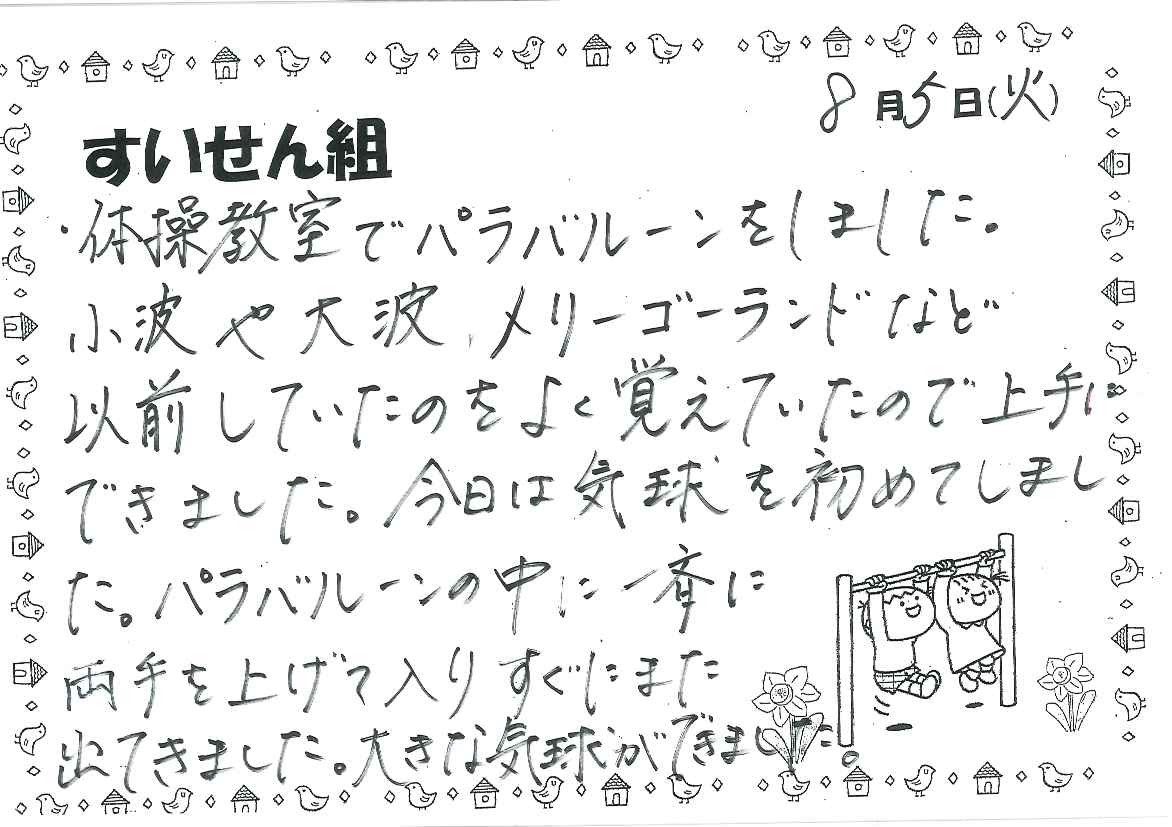 8月5日(火)
すいせん組
・体操教室でパラバルーンをしました。
小波や大波、メリーゴーランドなど
以前していたのをよく覚えていたので上手に
できました。今日は気球を初めてしまし
た。パラバルーンの中に一斉に
両手を上げて入りすぐにまた
出てきました。大きな気球ができました。